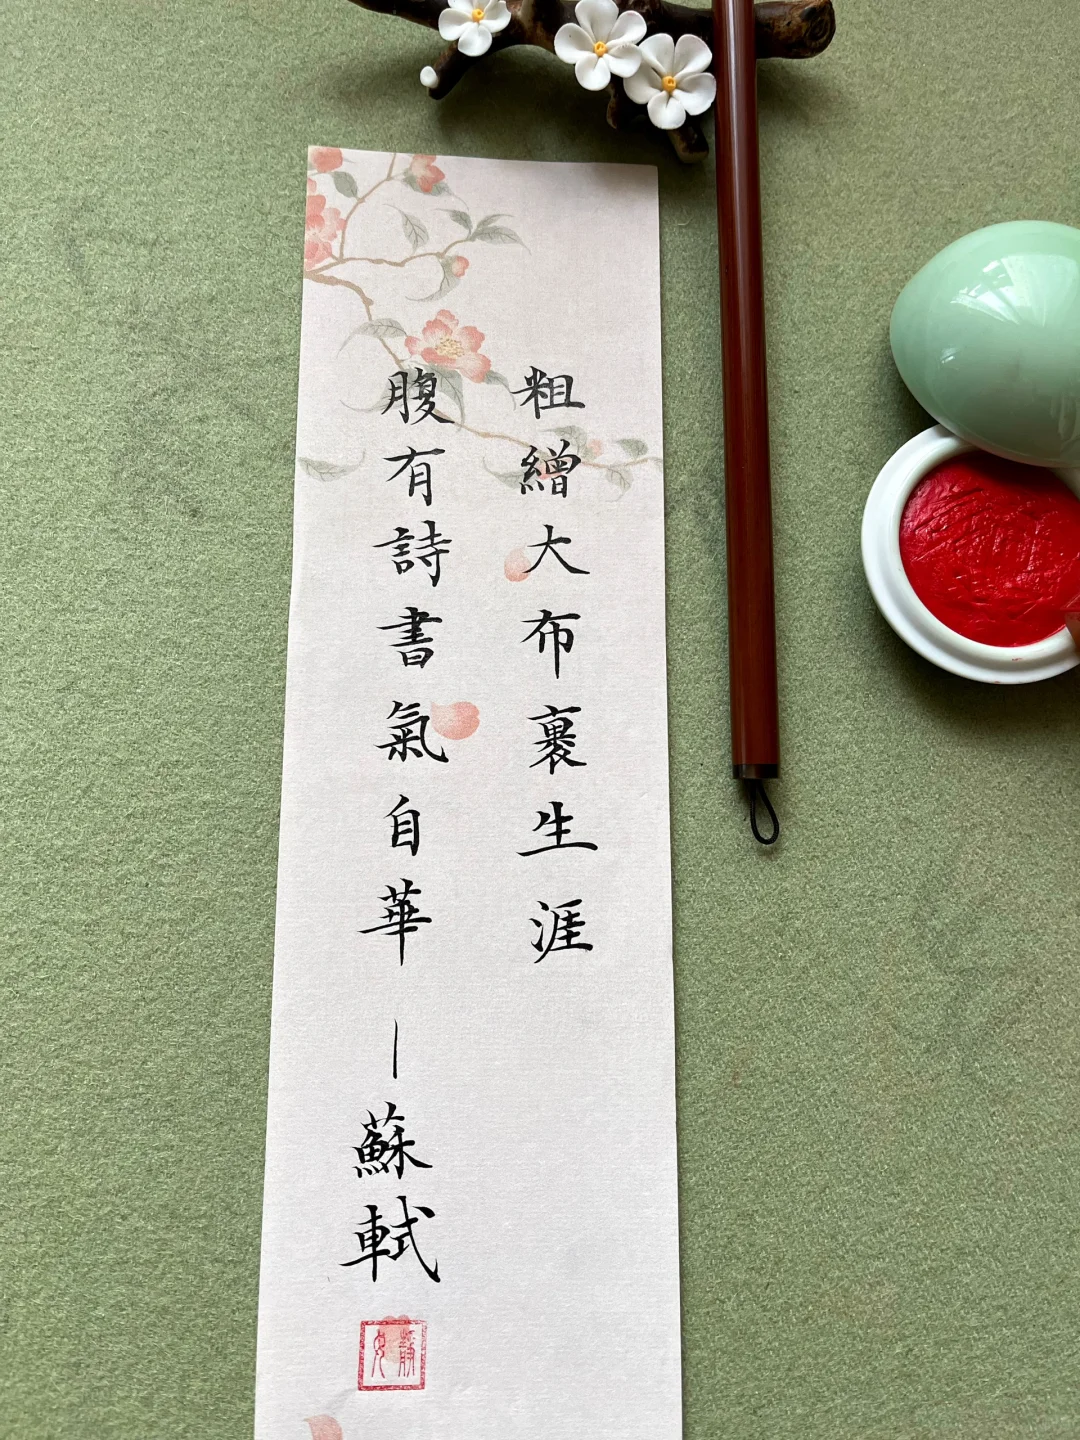 粗繒大布裹生涯
腹有詩書氣自華—蘇軾